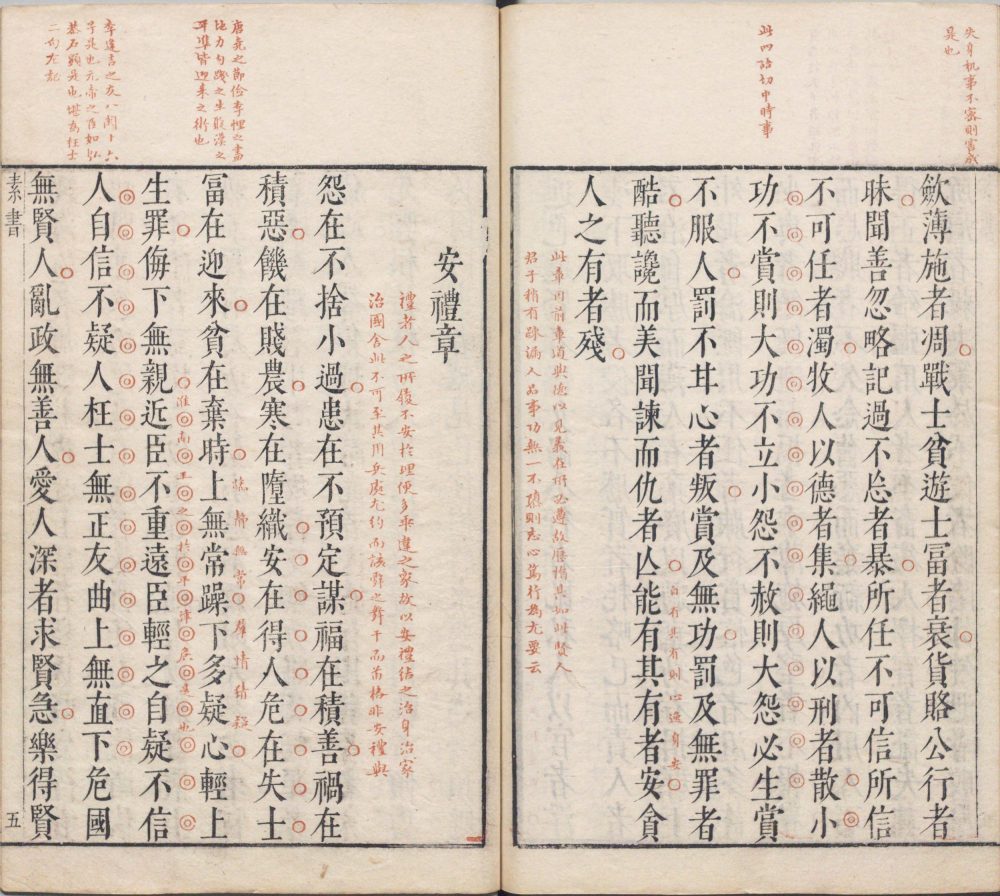 失身机事不密則害成
是也
此四語切中時事
歛薄施者凋戰士貧遊士冨者衰貨賂公行者
昧聞善忽略記過不忘者暴所任不可信所信
不可任者濁牧人以德者集繩人以刑者散小
功不賞則大功不立小怨不赦則大怨必生賞
不服人罰不甘心者叛賞及無功罰及無罪者
酷聽讒而美聞諫而仇者亾能有其有者安貪
自有其有則心逸身安
人之有者殘
唐堯之節儉李悝之盡
地力勾踐之生聚漢之
平準皆迎来之術也
李逢吉之友八関十六
子是也元帝之臣如弘
恭石顯是也堪為枉士
二句左記
安禮章
禮者人之所履不安於理便多乖違之家故以安禮結之治身治家
治國舍此不可至其用兵處尤約而該
怨在不捨小過患在不預定謀福在積善禍在
積惡饑在賤農寒在墮織安在得人危在失士
冨在迎來貧在棄時上無常躁下多疑心輕上
生罪侮下無親近臣不重遠臣輕之自疑不信
人自信不疑人枉士無正友曲上無直下危國
無賢人亂政無善人愛人深者求賢急樂得賢
素書
五